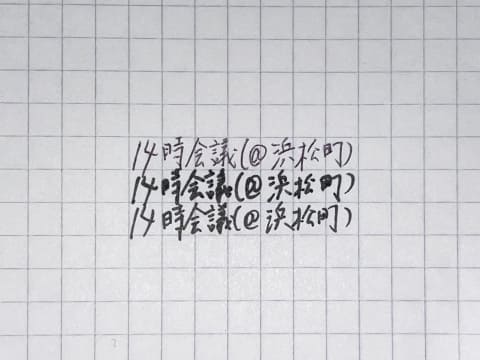 14時会議(@浜松町)
14時会議(@浜松町)
14時会議(@浜松町)